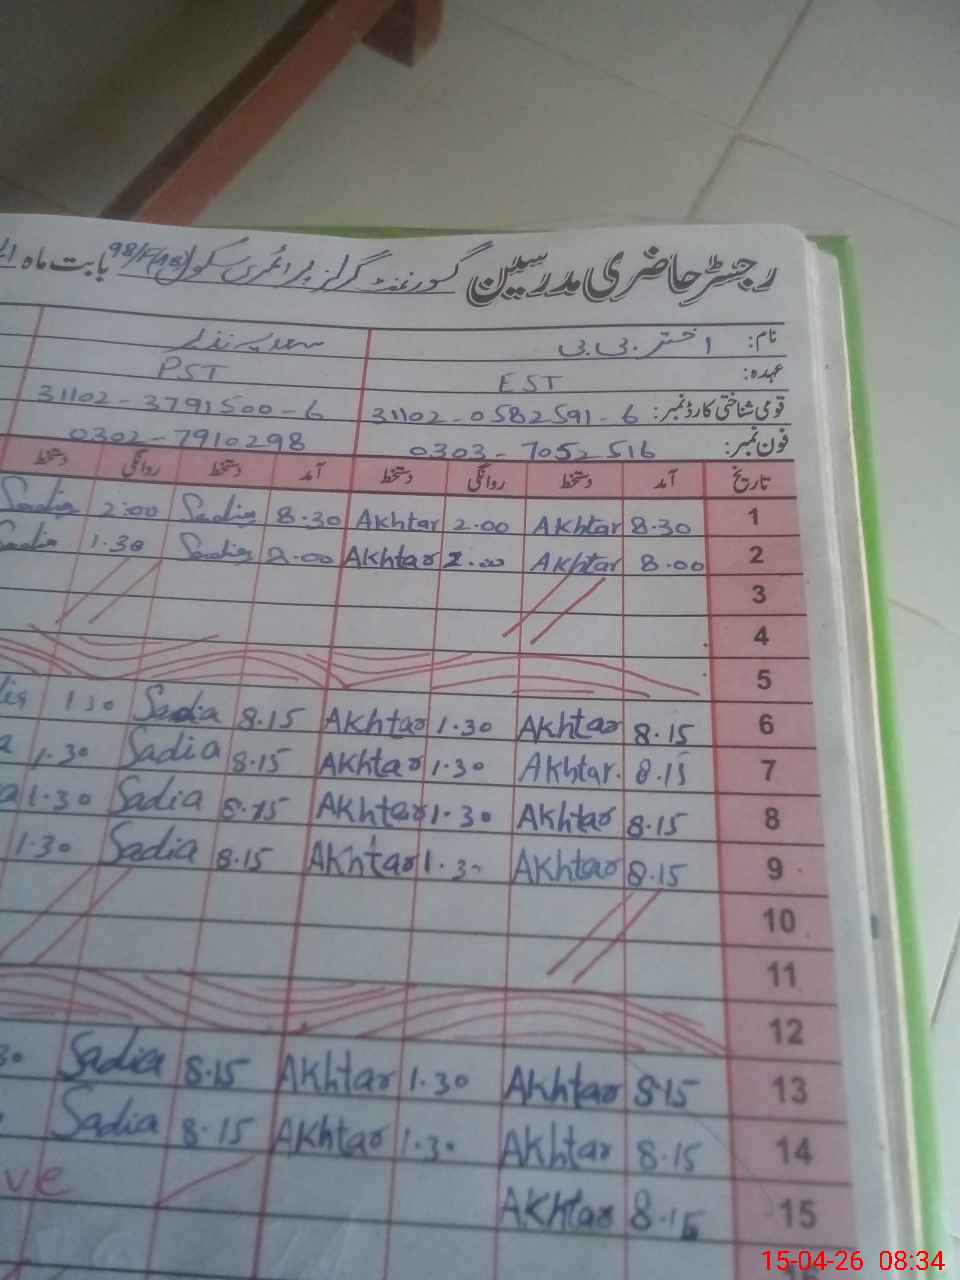 رجسٹر حاضری مدرسین گورنمنٹ گرلز پرائمری سکول 98/F(AB) بابت ماہ
نام: اختر بی بی
عہدہ: EST PST
قومی شناختی کارڈ نمبر: 31102-0582591-6 31102-3791500-6
فون نمبر: 0303-7052516 0302-7910298
تاریخ آمد دستخط روانگی دستخط آمد دستخط روانگی دستخط
1 8.30 Akhtar 2.00 Akhtar 8.30 Sadia 2:00 Sadia
2 8.00 Akhtar 2.00 Akhtar 8.00 Sadia 1.30 Sadia
3
4
5
6 8.15 Akhtar 1.30 Akhtar 8.15 Sadia 1.30
7 8.15 Akhtar. 1.30 Akhtar 8.15 Sadia 1.30
8 8.15 Akhtar 1.30 Akhtar 8.15 Sadia 1.30
9 8.15 Akhtar 1.30 Akhtar 8.15 Sadia 1.30
10
11
12
13 8.15 Akhtar 1.30 Akhtar 8.15 Sadia
14 8.15 Akhtar 1.30 Akhtar 8.15 Sadia
15 8.15 Akhtar
15-04-26 08:34